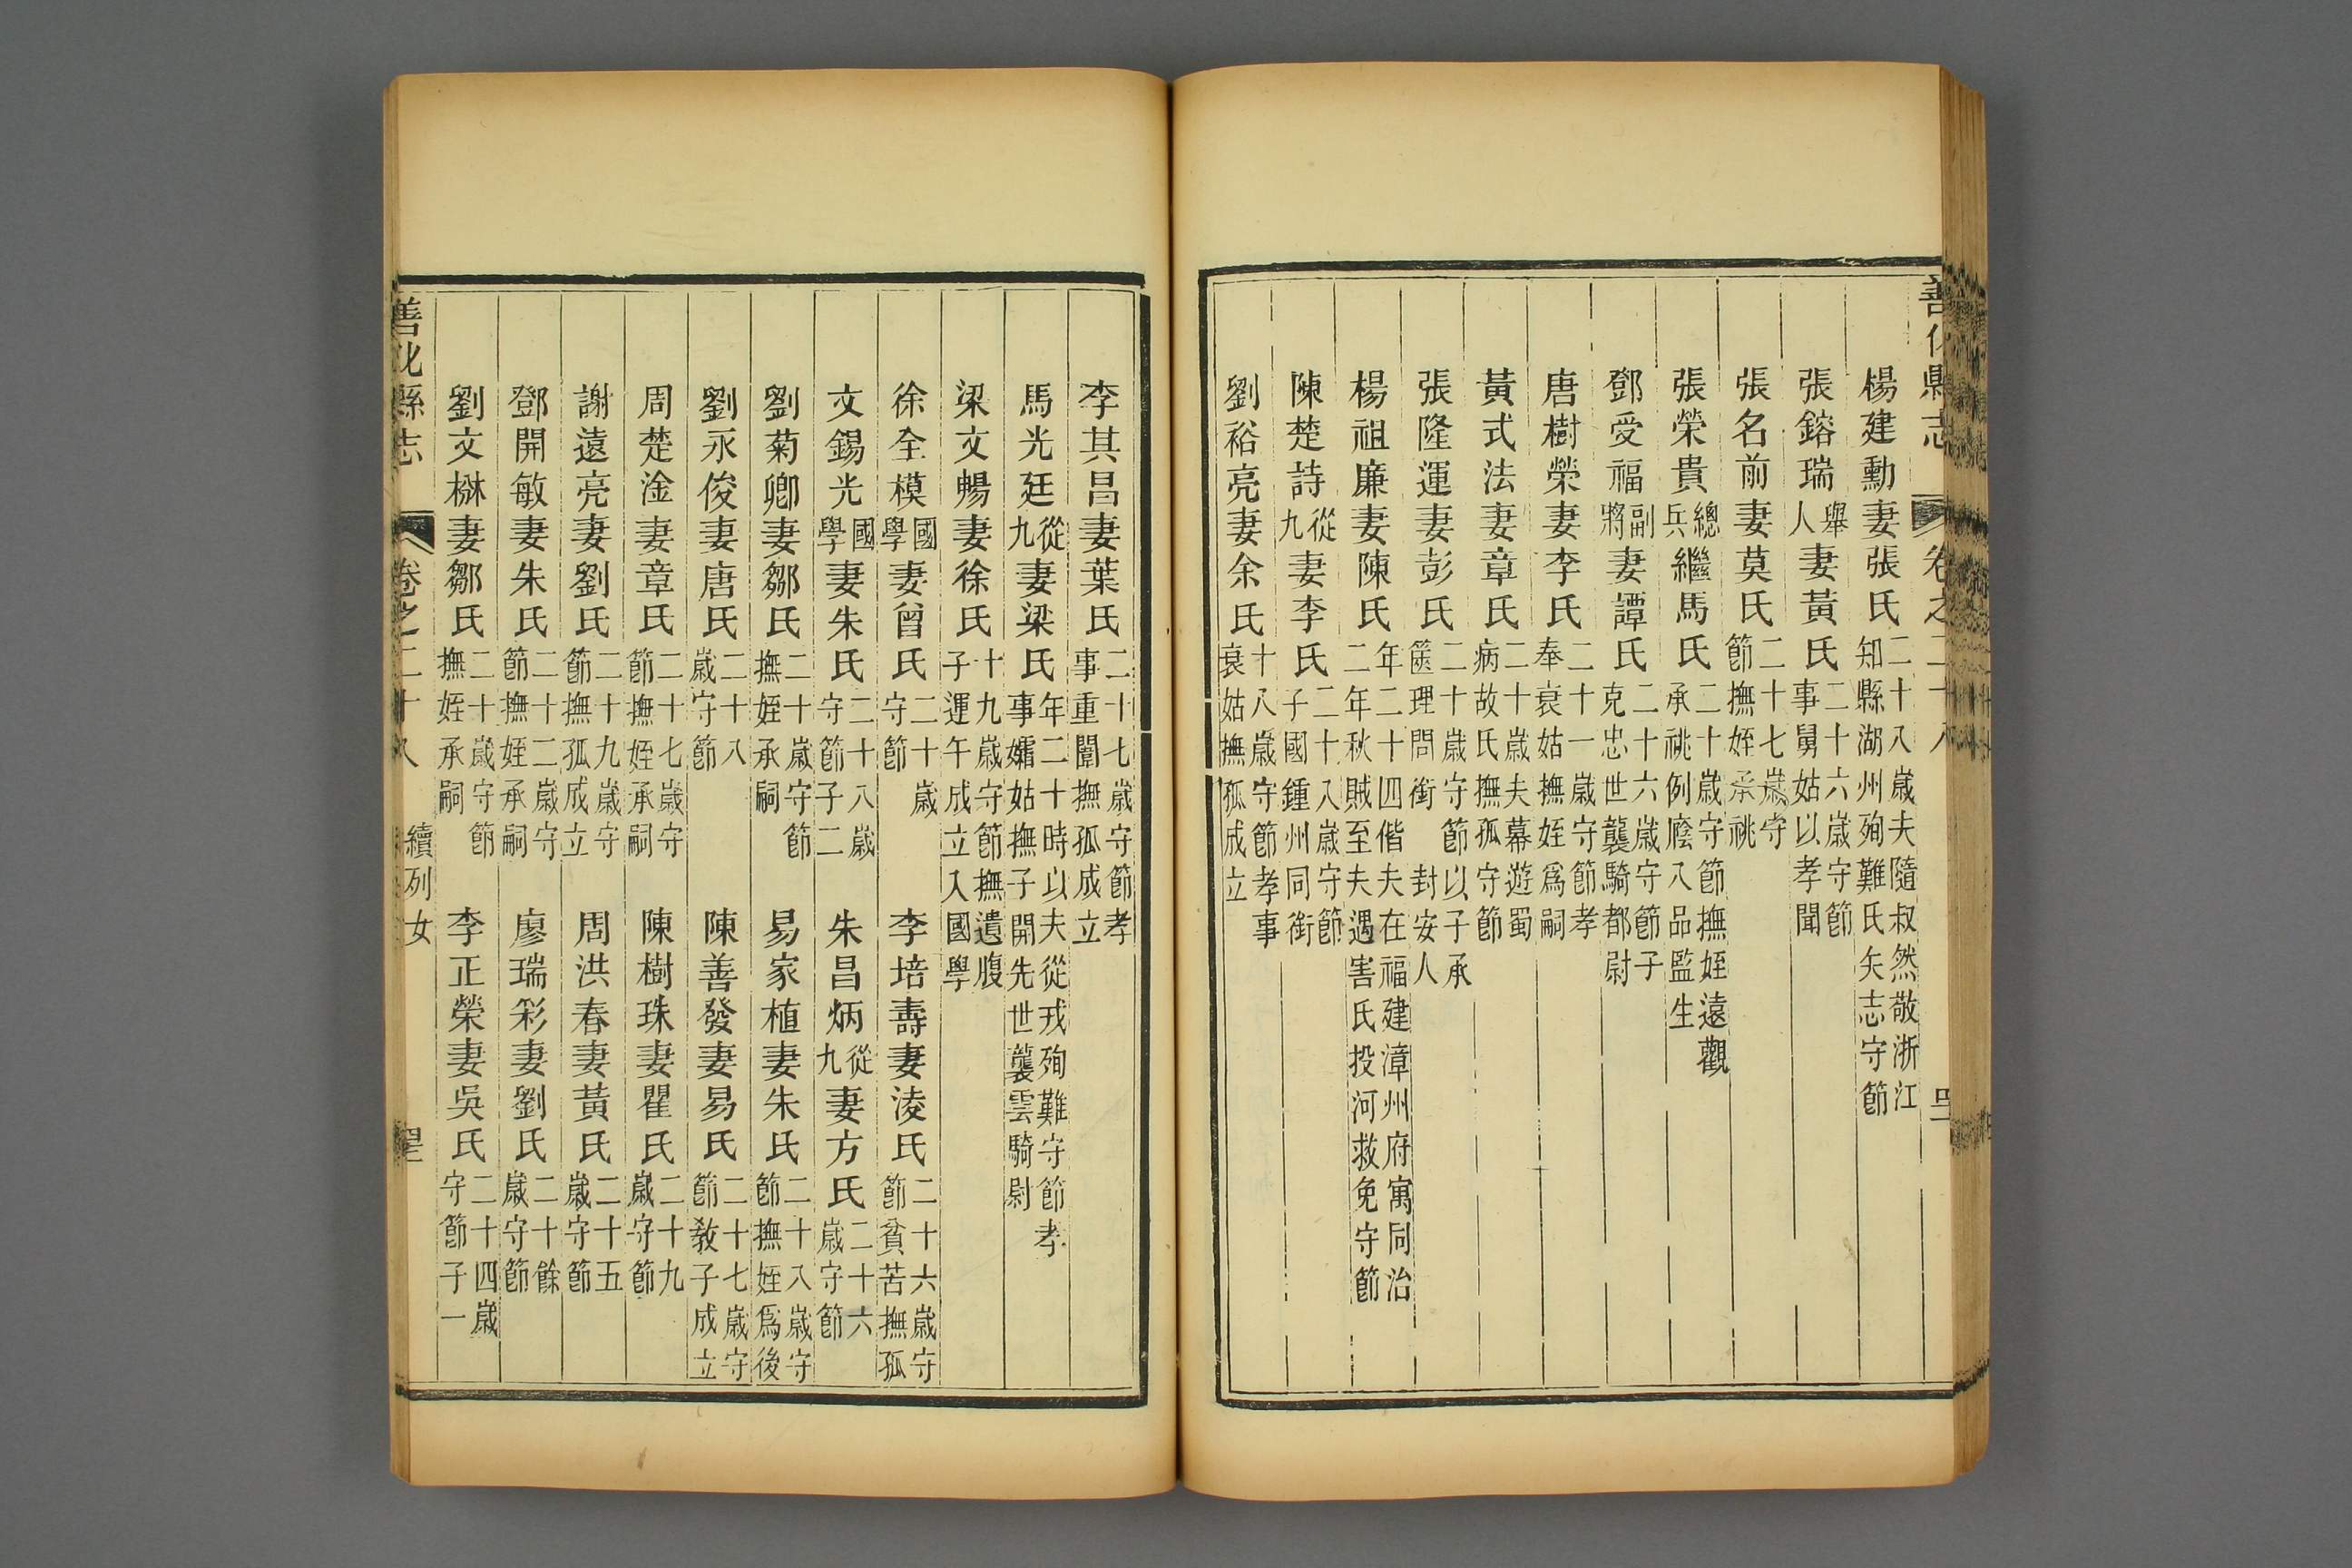 善化縣志 卷之二十八
楊建勳妻張氏二十八歲夫隨叔然敬浙江知縣湖州殉難氏矢志守節
張鎔瑞舉人妻黃氏二十六歲守節事舅姑以孝聞
張名前妻莫氏二十七歲守節撫姪承祧
張榮貴總兵繼馬氏二十歲守節撫姪遠觀承祧例廕八品監生
鄧受福副將妻譚氏二十六歲守節子克忠世襲騎都尉
唐樹榮妻李氏二十一歲守節孝奉衰姑撫姪爲嗣
黃式法妻章氏二十歲夫幕遊蜀病故氏撫孤守節
張隆運妻彭氏二十歲守節以子承篋理問銜封安人
楊祖廉妻陳氏年二十四偕夫在福建漳州府寓同治二年秋賊至夫遇害氏投河救免守節
陳楚詩從九妻李氏二十八歲守節子國鍾州同銜
劉裕亮妻余氏十八歲守節孝事衰姑撫孤成立
李其昌妻葉氏二十七歲守節孝事重闈撫孤成立
馬光廷從九妻梁氏年二十時以夫從戎殉難守節孝事孀姑撫子開先世襲雲騎尉
梁文暢妻徐氏十九歲守節撫遺腹子運午成立入國學
徐全模國學妻曾氏二十歲守節 李培壽妻淩氏二十六歲守節貧苦撫孤
文錫光國學妻朱氏二十八歲守節子二 朱昌炳從九妻方氏二十六歲守節
劉菊卿妻鄒氏二十歲守節撫姪承嗣 易家植妻朱氏二十八歲守節撫姪爲後
劉永俊妻唐氏二十八歲守節 陳善發妻易氏二十七歲守節教子成立
周楚淦妻章氏二十七歲守節撫姪承嗣 陳樹珠妻瞿氏二十九歲守節
謝遠亮妻劉氏二十九歲守節撫孤成立 周洪春妻黃氏二十五歲守節
鄧開敏妻朱氏二十二歲守節撫姪承嗣 廖瑞彩妻劉氏二十餘歲守節
劉文楙妻鄒氏二十歲守節撫姪承嗣 李正榮妻吳氏二十四歲守節子一
善化縣志 卷之二十八 續列女